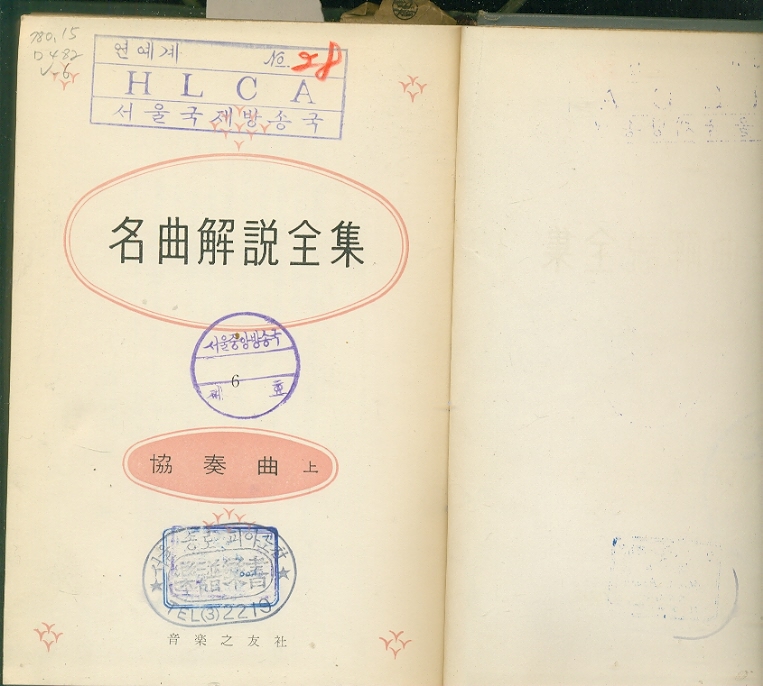 780.15
D482
V-6
연예계 No. 28
HLCA
서울국제방송국
名曲解説全集
서울중앙방송국
6
제 호
協奏曲 上
서울 종로
樂書
TEL(3)2219
音楽之友社